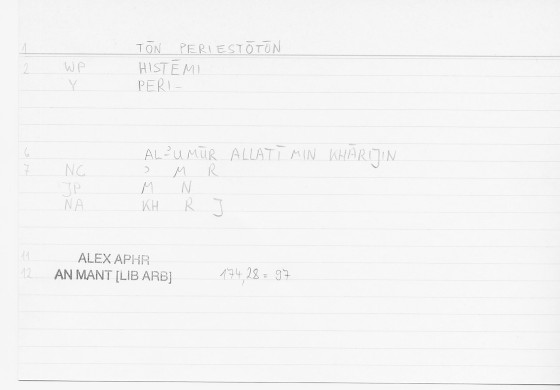 1 TŌN PERIESTŌTŌN
2 WP HISTĒMI
Y PERI-
6 AL-ʾUMŪR ALLATĪ MIN KHĀRIJIN
7 NC ʾ M R
JP M N
NA KH R J
11 ALEX APHR
12 AN MANT [LIB ARB] 174,28 = 97